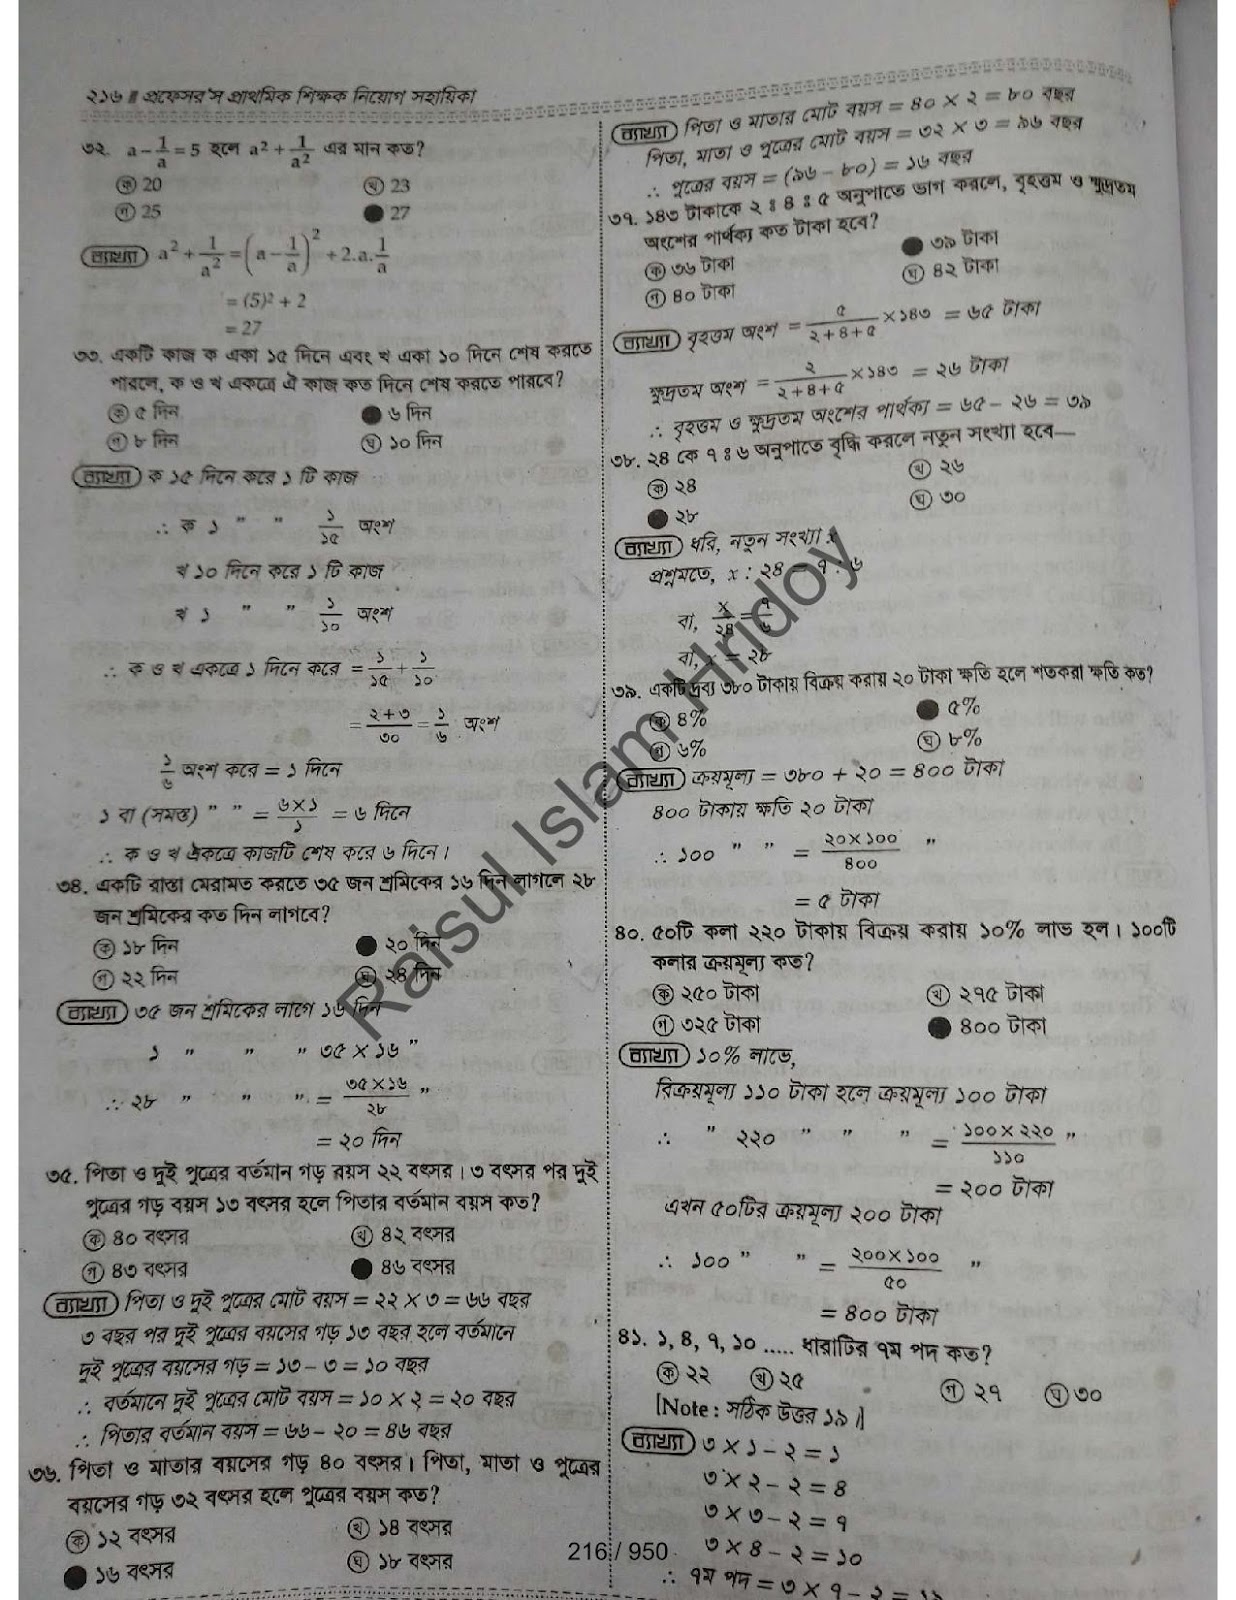 ২১৬ ॥ প্রফেসর'স প্রাথমিক শিক্ষক নিয়োগ সহায়িকা
৩২. a - 1/a = 5 হলে a² + 1/a² এর মান কত?
ক 20 খ 23
গ 25 ● 27
ব্যাখ্যা a² + 1/a² = (a - 1/a)² + 2.a.1/a
= (5)² + 2
= 27
৩৩. একটি কাজ ক একা ১৫ দিনে এবং খ একা ১০ দিনে শেষ করতে
পারলে, ক ও খ একত্রে ঐ কাজ কত দিনে শেষ করতে পারবে?
ক ৫ দিন ● ৬ দিন
গ ৮ দিন ঘ ১০ দিন
ব্যাখ্যা ক ১৫ দিনে করে ১ টি কাজ
∴ ক ১ " " ১/১৫ অংশ
খ ১০ দিনে করে ১ টি কাজ
খ ১ " " ১/১০ অংশ
∴ ক ও খ একত্রে ১ দিনে করে = ১/১৫ + ১/১০
= ২+৩/৩০ = ১/৬ অংশ
১/৬ অংশ করে = ১ দিনে
১ বা (সমস্ত) " " = ৬×১/১ = ৬ দিনে
∴ ক ও খ একত্রে কাজটি শেষ করে ৬ দিনে।
৩৪. একটি রাস্তা মেরামত করতে ৩৫ জন শ্রমিকের ১৬ দিন লাগলে ২৮
জন শ্রমিকের কত দিন লাগবে?
ক ১৮ দিন ● ২০ দিন
গ ২২ দিন ঘ ২৪ দিন
ব্যাখ্যা ৩৫ জন শ্রমিকের লাগে ১৬ দিন
১ " " " ৩৫ × ১৬ "
∴ ২৮ " " " = ৩৫×১৬/২৮ "
= ২০ দিন
৩৫. পিতা ও দুই পুত্রের বর্তমান গড় বয়স ২২ বৎসর। ৩ বৎসর পর দুই
পুত্রের গড় বয়স ১৩ বৎসর হলে পিতার বর্তমান বয়স কত?
ক ৪০ বৎসর খ ৪২ বৎসর
গ ৪৩ বৎসর ● ৪৬ বৎসর
ব্যাখ্যা পিতা ও দুই পুত্রের মোট বয়স = ২২ × ৩ = ৬৬ বছর
৩ বছর পর দুই পুত্রের বয়সের গড় ১৩ বছর হলে বর্তমানে
দুই পুত্রের বয়সের গড় = ১৩ – ৩ = ১০ বছর
∴ বর্তমানে দুই পুত্রের মোট বয়স = ১০ × ২ = ২০ বছর
∴ পিতার বর্তমান বয়স = ৬৬ – ২০ = ৪৬ বছর
৩৬. পিতা ও মাতার বয়সের গড় ৪০ বৎসর। পিতা, মাতা ও পুত্রের
বয়সের গড় ৩২ বৎসর হলে পুত্রের বয়স কত?
ক ১২ বৎসর খ ১৪ বৎসর
● ১৬ বৎসর ঘ ১৮ বৎসর
ব্যাখ্যা পিতা ও মাতার মোট বয়স = ৪০ × ২ = ৮০ বছর
পিতা, মাতা ও পুত্রের মোট বয়স = ৩২ × ৩ = ৯৬ বছর
∴ পুত্রের বয়স = (৯৬ – ৮০) = ১৬ বছর
৩৭. ১৪৩ টাকাকে ২ : ৪ : ৫ অনুপাতে ভাগ করলে, বৃহত্তম ও ক্ষুদ্রতম
অংশের পার্থক্য কত টাকা হবে?
ক ৩৬ টাকা ● ৩৯ টাকা
গ ৪০ টাকা ঘ ৪২ টাকা
ব্যাখ্যা বৃহত্তম অংশ = ৫/২+৪+৫ × ১৪৩ = ৬৫ টাকা
ক্ষুদ্রতম অংশ = ২/২+৪+৫ × ১৪৩ = ২৬ টাকা
∴ বৃহত্তম ও ক্ষুদ্রতম অংশের পার্থক্য = ৬৫ – ২৬ = ৩৯
৩৮. ২৪ কে ৭ : ৬ অনুপাতে বৃদ্ধি করলে নতুন সংখ্যা হবে—
ক ২৪ খ ২৬
● ২৮ ঘ ৩০
ব্যাখ্যা ধরি, নতুন সংখ্যা x
প্রশ্নমতে, x : ২৪ = ৭ : ৬
বা, x/২৪ = ৭/৬
বা, x = ২৮
৩৯. একটি দ্রব্য ৩৮০ টাকায় বিক্রয় করায় ২০ টাকা ক্ষতি হলে শতকরা ক্ষতি কত?
ক ৪% ● ৫%
গ ৬% ঘ ৮%
ব্যাখ্যা ক্রয়মূল্য = ৩৮০ + ২০ = ৪০০ টাকা
৪০০ টাকায় ক্ষতি ২০ টাকা
∴ ১০০ " " = ২০×১০০/৪০০ "
= ৫ টাকা
৪০. ৫০টি কলা ২২০ টাকায় বিক্রয় করায় ১০% লাভ হল। ১০০টি
কলার ক্রয়মূল্য কত?
ক ২৫০ টাকা খ ২৭৫ টাকা
গ ৩২৫ টাকা ● ৪০০ টাকা
ব্যাখ্যা ১০% লাভে,
বিক্রয়মূল্য ১১০ টাকা হলে ক্রয়মূল্য ১০০ টাকা
∴ " ২২০ " " " = ১০০×২২০/১১০ "
= ২০০ টাকা
এখন ৫০টির ক্রয়মূল্য ২০০ টাকা
∴ ১০০ " " = ২০০×১০০/৫০ "
= ৪০০ টাকা
৪১. ১, ৪, ৭, ১০ ..... ধারাটির ৭ম পদ কত?
ক ২২ খ ২৫ গ ২৭ ঘ ৩০
[Note : সঠিক উত্তর ১৯।]
ব্যাখ্যা ৩ × ১ – ২ = ১
৩ × ২ – ২ = ৪
৩ × ৩ – ২ = ৭
৩ × ৪ – ২ = ১০
∴ ৭ম পদ = ৩ × ৭ – ২ = ১৯
Raisul Islam Hridoy
216 / 950